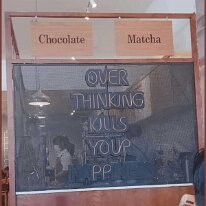 Chocolate Matcha
OVER
THINKING
KILLS
YOUR